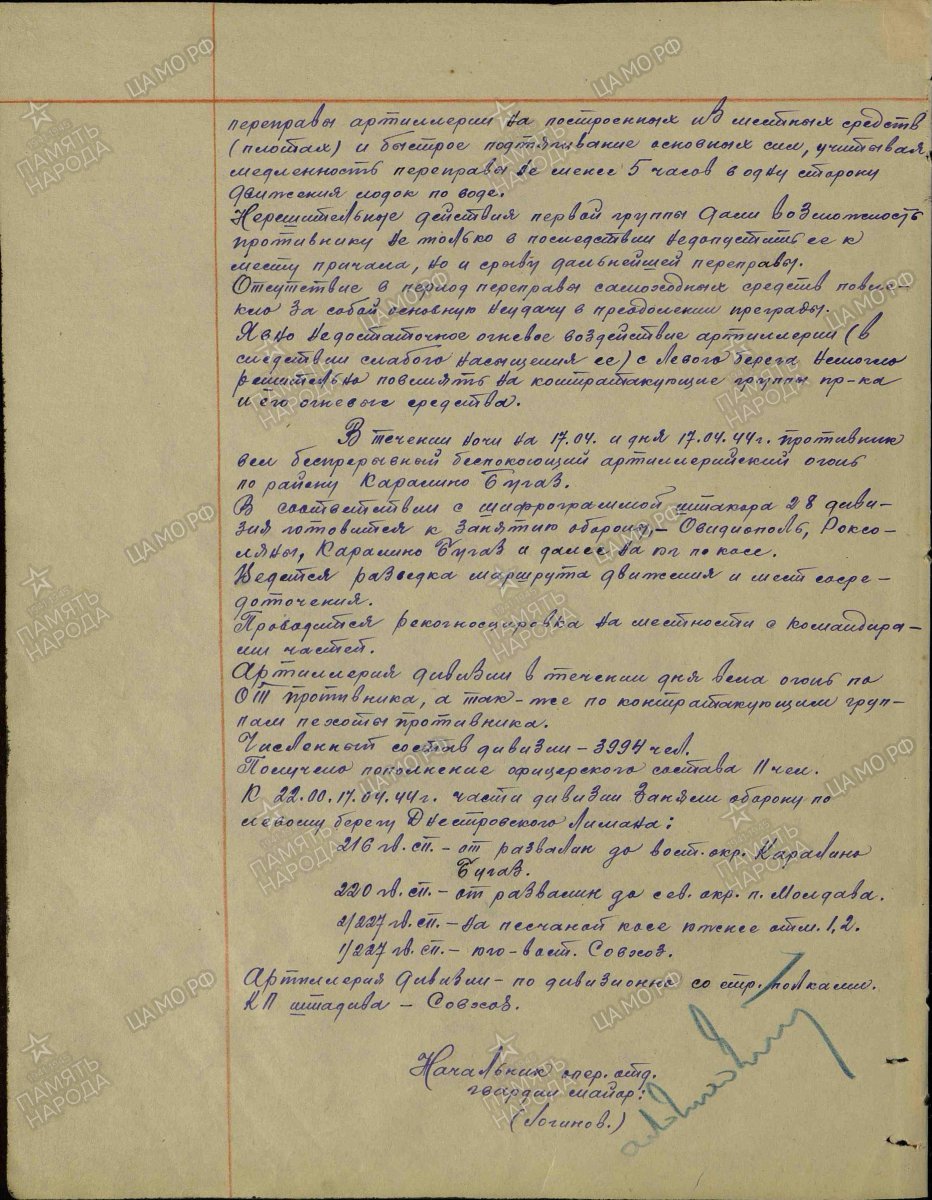 переправы артиллерии на построенных из местных средств
(плотах) и быстрое подтягивание основных сил, учитывая
медленность переправы не менее 5 часов в одну сторону
движения лодок по воде.
Нерешительные действия первой группы дали возможность
противнику не только в последствии недопустить ее к
месту причала, но и срыву дальнейшей переправы.
Отсутствие в период переправы самоходных средств повле-
кло за собой основную неудачу в преодолении преграды.
Явно недостаточное огневое воздействие артиллерии (в
следствии слабого насыщения ее) с левого берега немогло
решительно повлиять на контратакующие группы пр-ка
и его огневые средства.
В течении ночи на 17.04. и дня 17.04.44г. противник
вел беспрерывный беспокоющий артиллерийский огонь
по району Каралино Бугаз.
В соответствии с шифрограммой штакора 28 диви-
зия готовится к занятию обороны – Овидиополь, Роксо-
ляны, Каралино Бугаз и далее на юг по косе.
Ведется разведка маршрута движения и мест сосре-
доточения.
Проводится рекогносцировка на местности с командира-
ми частей.
Артиллерия дивизии в течении дня вела огонь по
ОТ противника, а так-же по контратакующим груп-
пам пехоты противника.
Численный состав дивизии – 3994 чел.
Получено пополнение офицерского состава 11 чел.
К 22.00. 17.04.44г. части дивизии заняли оборону по
левому берегу Днестровского Лимана:
216 гв. сп. – от развалин до вост. окр. Каралино
Бугаз.
220 гв. сп. – от развалин до сев. окр. п. Молдава.
2/227 гв. сп. – на песчаной косе южнее отм. 1,2.
1/227 гв. сп. – юго-вост. Совхоз.
Артиллерия дивизии – по дивизионно со стр. полками.
КП штадива – Совхоз.
Начальник опер. отд.
гвардии майор:
(Логинов.)
ПАМЯТЬ НАРОДА
ЦАМО.РФ